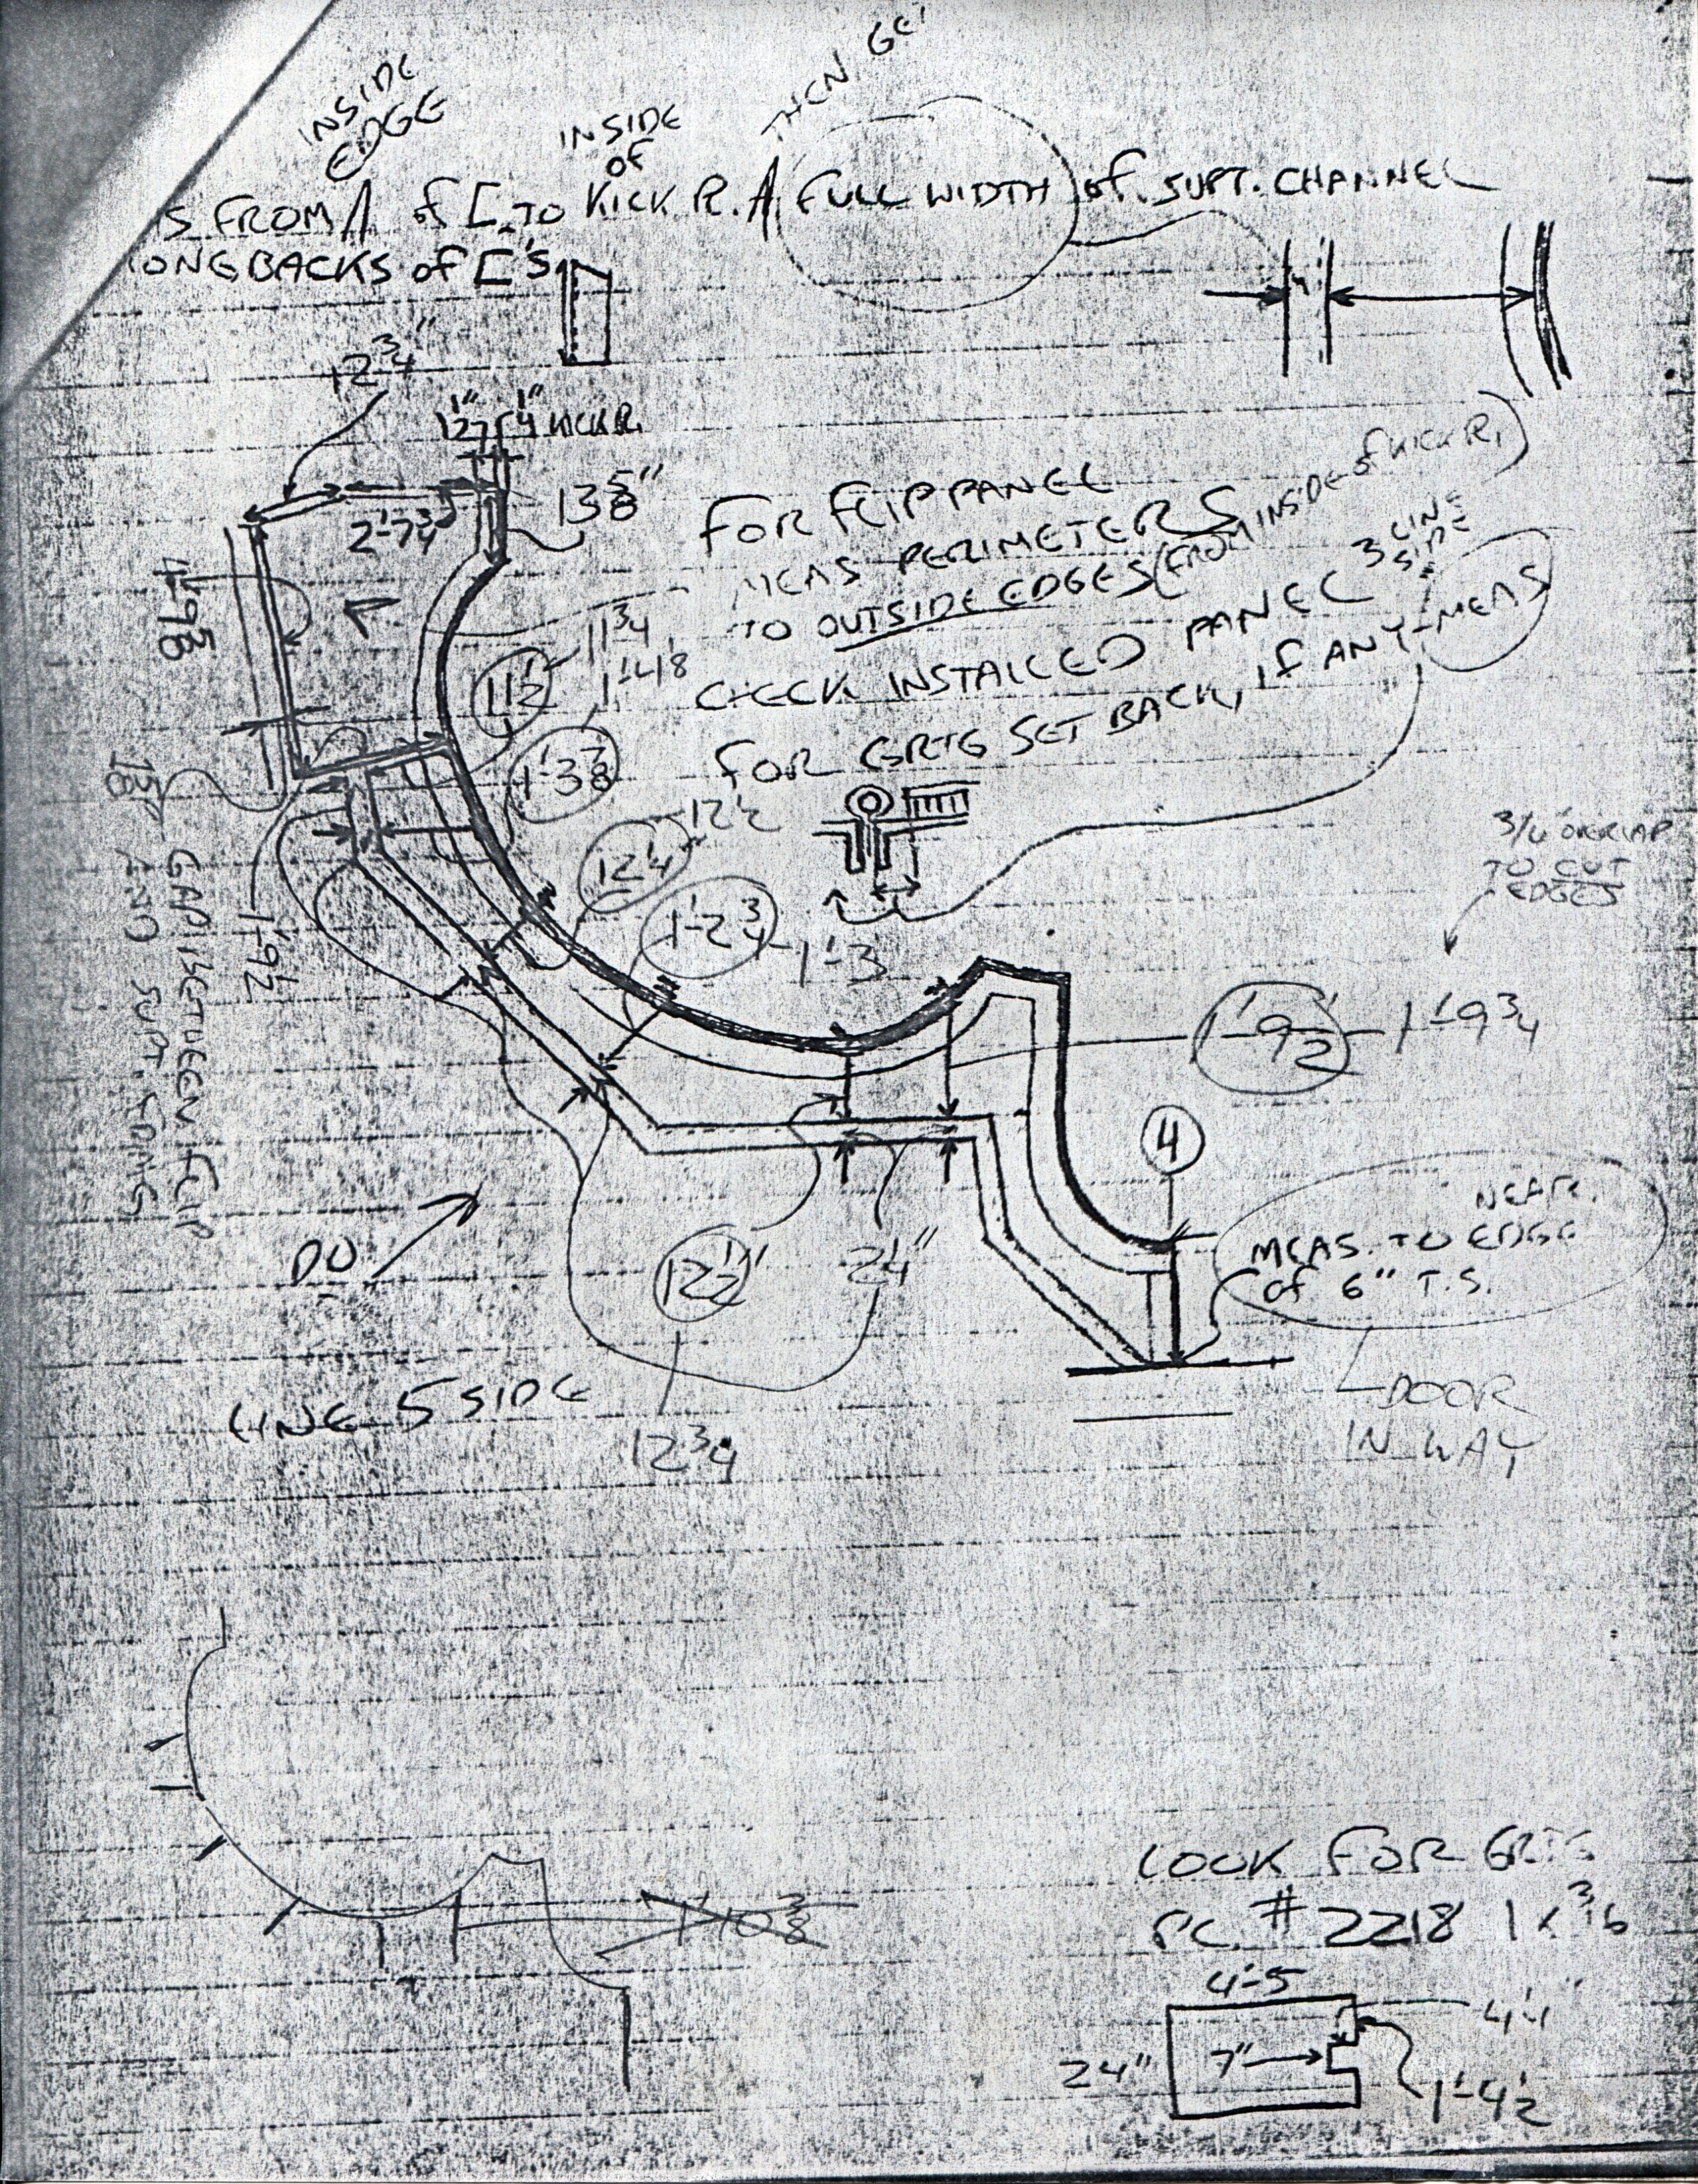 THEN GET
INSIDE
EDGE
INSIDE
OF
S FROM of [ TO KICK R. FULL WIDTH of SUPT. CHANNEL
ONG BACKS of ['S
12 3/4"
1/2" 1/4" KICK R.
13 5/8"
2'-7 3/4
FOR FLIP PANEL
MEAS PERIMETERS
TO OUTSIDE EDGES (FROM INSIDE of KICK R.)
CHECK INSTALLED PANEL 3 LINE SIDE
FOR GRTG SET BACK, IF ANY - MEAS
4'-9 5/8
11 1/2
11 3/4
1'-3 7/8
12 1/4
12 1/2
1'-2 3/4 - 1'-3
1'-9 1/2
GAP BETWEEN FLIP
AND SUPT. FRMG
3/16 OVERLAP
TO CUT
EDGES
1'-9 1/2 - 1'-9 3/4
4
NEAR
MEAS. TO EDGE
of 6" T.S.
DOOR
IN WAY
DO
12 1/2"
2 1/4"
LINE 5 SIDE
12 3/4
1'-10 3/8
LOOK FOR GRTG
PC. # 2218 1 x 3/16
4'-5
4 1/4"
24"
7"
1'-4 1/2